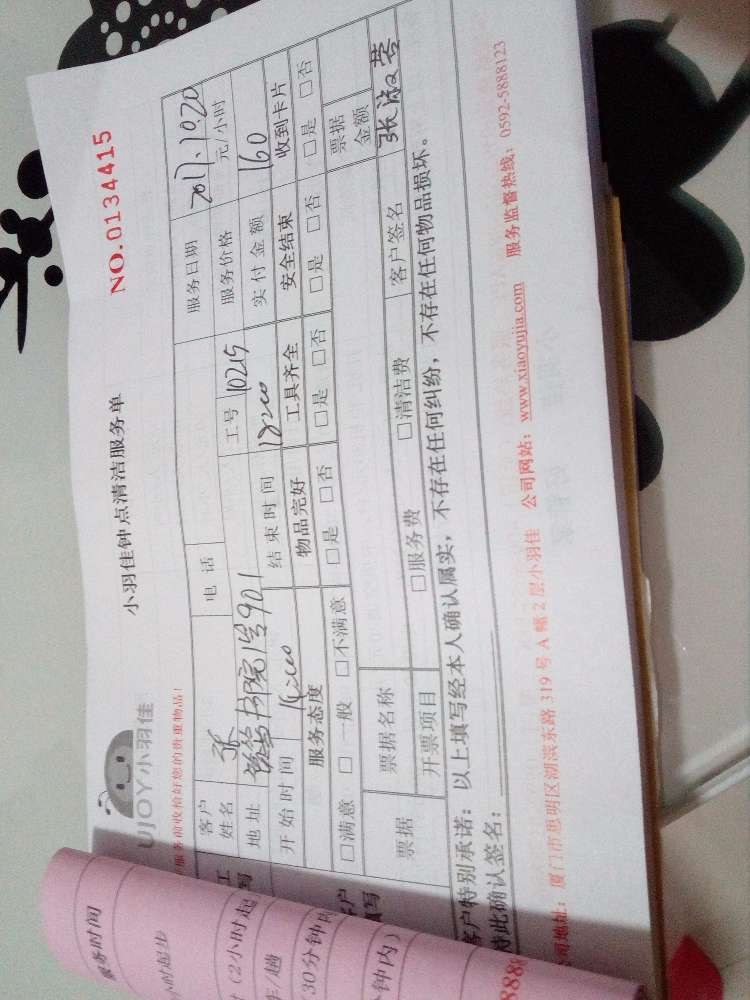 小羽佳钟点清洁服务单
NO.0134415
UJOY小羽佳
服务前收恰好您的贵重物品！
客户姓名 张 电话 服务日期 2017.10.20
地址 书院1号901 工号 10215 服务价格 元/小时
开始时间 结束时间 18:00 实付金额 160
服务态度 物品完好 工具齐全 安全结束 收到卡片
□满意 □一般 □不满意 □是 □否 □是 □否 □是 □否 □是 □否
票据 票据名称 票据金额
开票项目 □服务费 □清洁费 客户签名 张
客户特别承诺：以上填写经本人确认属实，不存在任何纠纷，不存在任何物品损坏。
特此确认签名：
公司地址：厦门市思明区湖滨东路319号A幢2层小羽佳 公司网站：www.xiaoyujia.com 服务监督热线：0592-5888123
服务时间
小时起步
（2小时起
/趟
30分钟内
钟内）
888